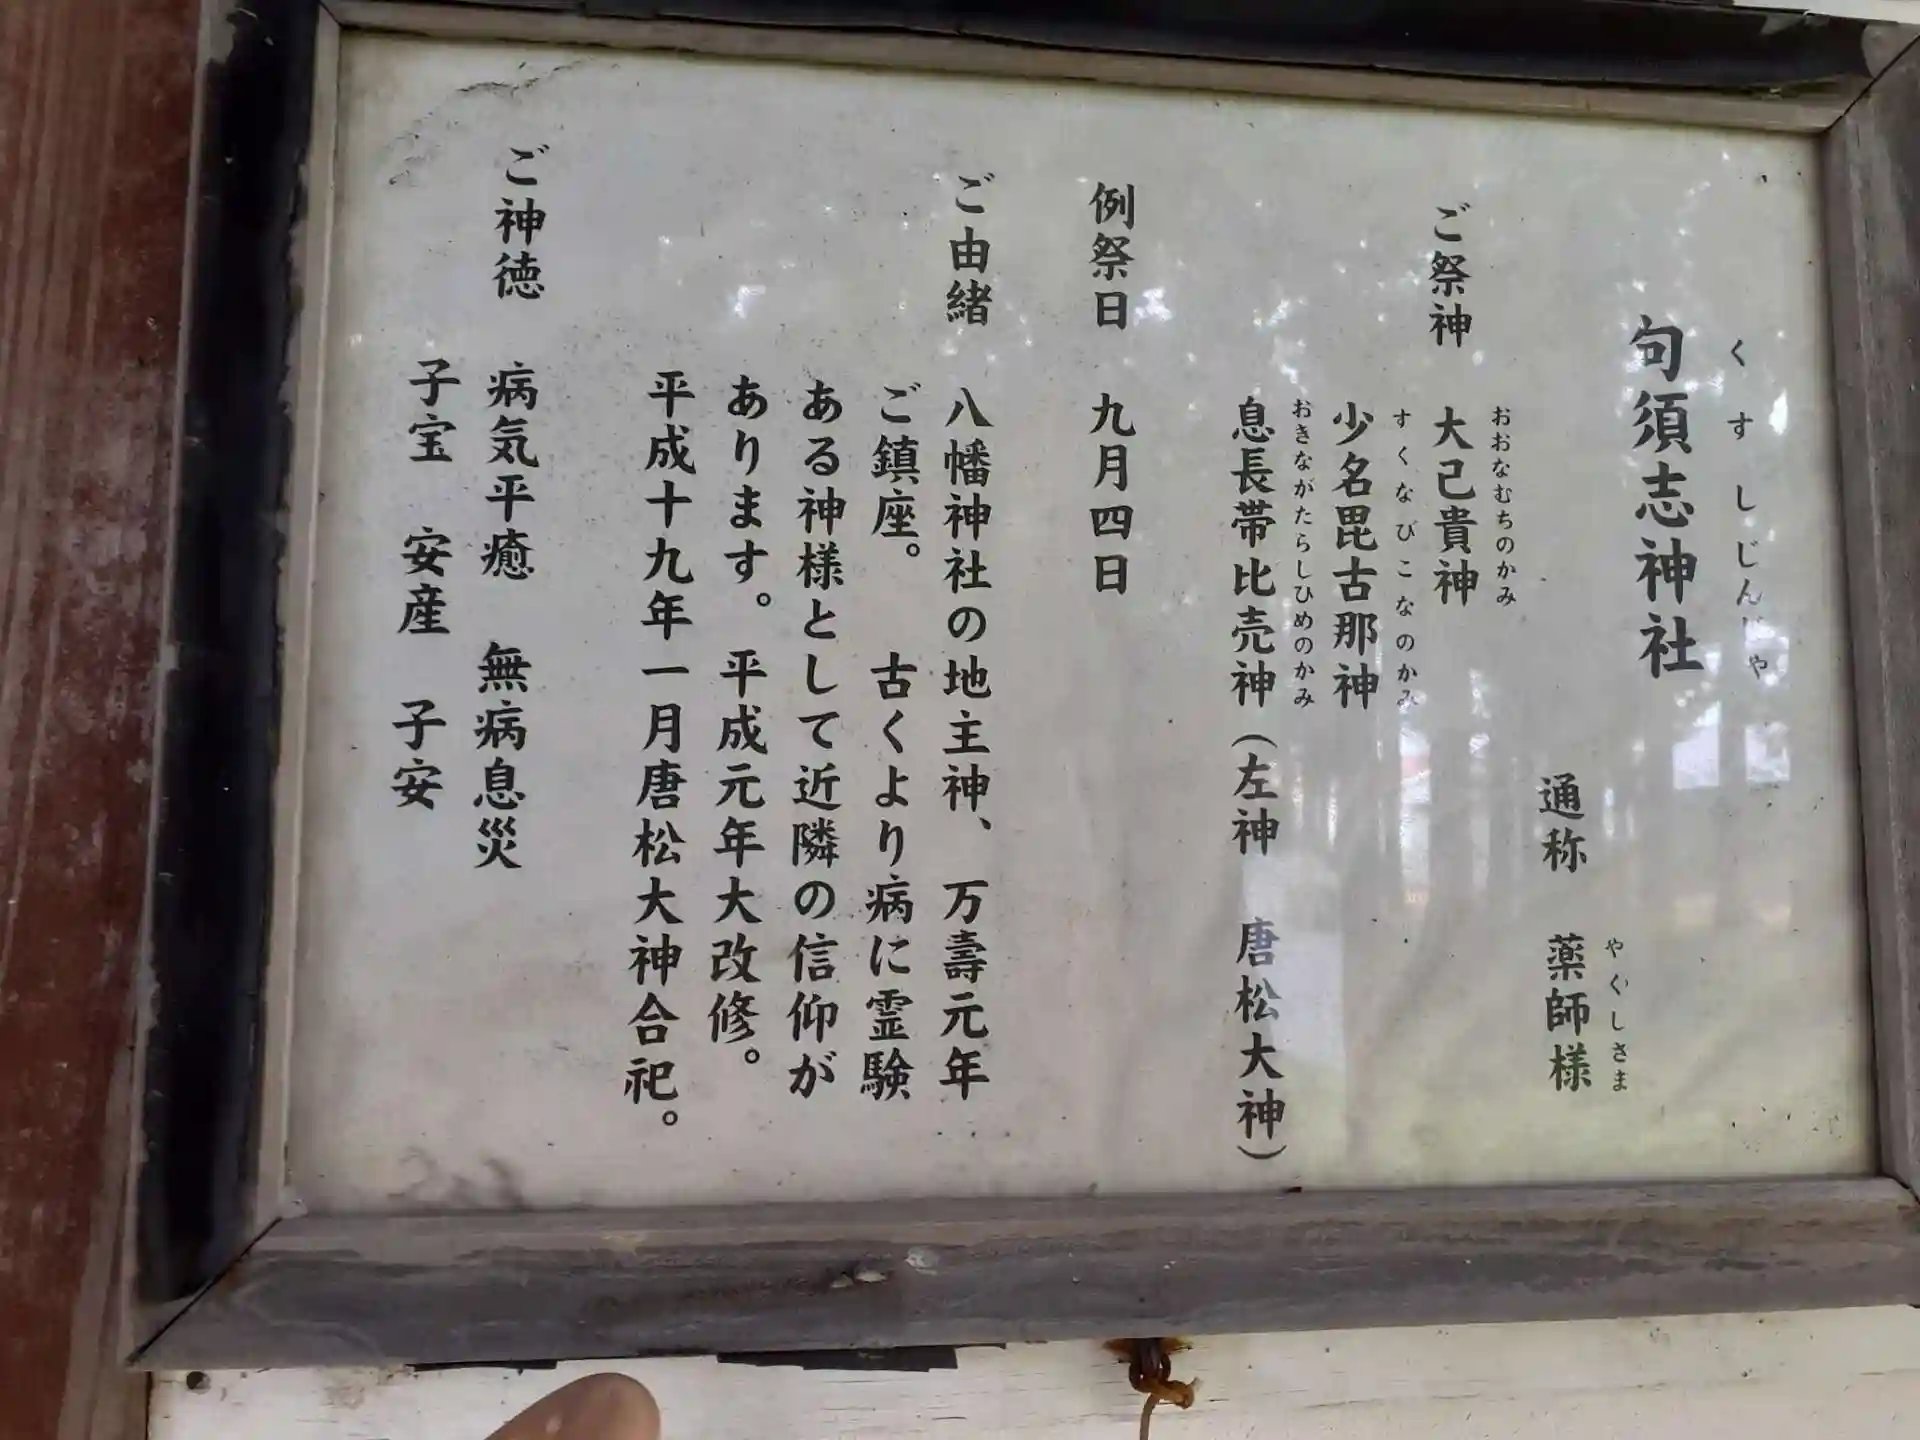 くすしじんじゃ
句須志神社
通称　薬師様
やくしさま
ご祭神　大己貴神
おおなむちのかみ
少名毘古那神
すくなびこなのかみ
息長帯比売神（左神　唐松大神）
おきながたらしひめのかみ
例祭日　九月四日
ご由緒　八幡神社の地主神、万壽元年
ご鎮座。　古くより病に霊験
ある神様として近隣の信仰が
あります。平成元年大改修。
平成十九年一月唐松大神合祀。
ご神徳　病気平癒　無病息災
子宝　安産　子安